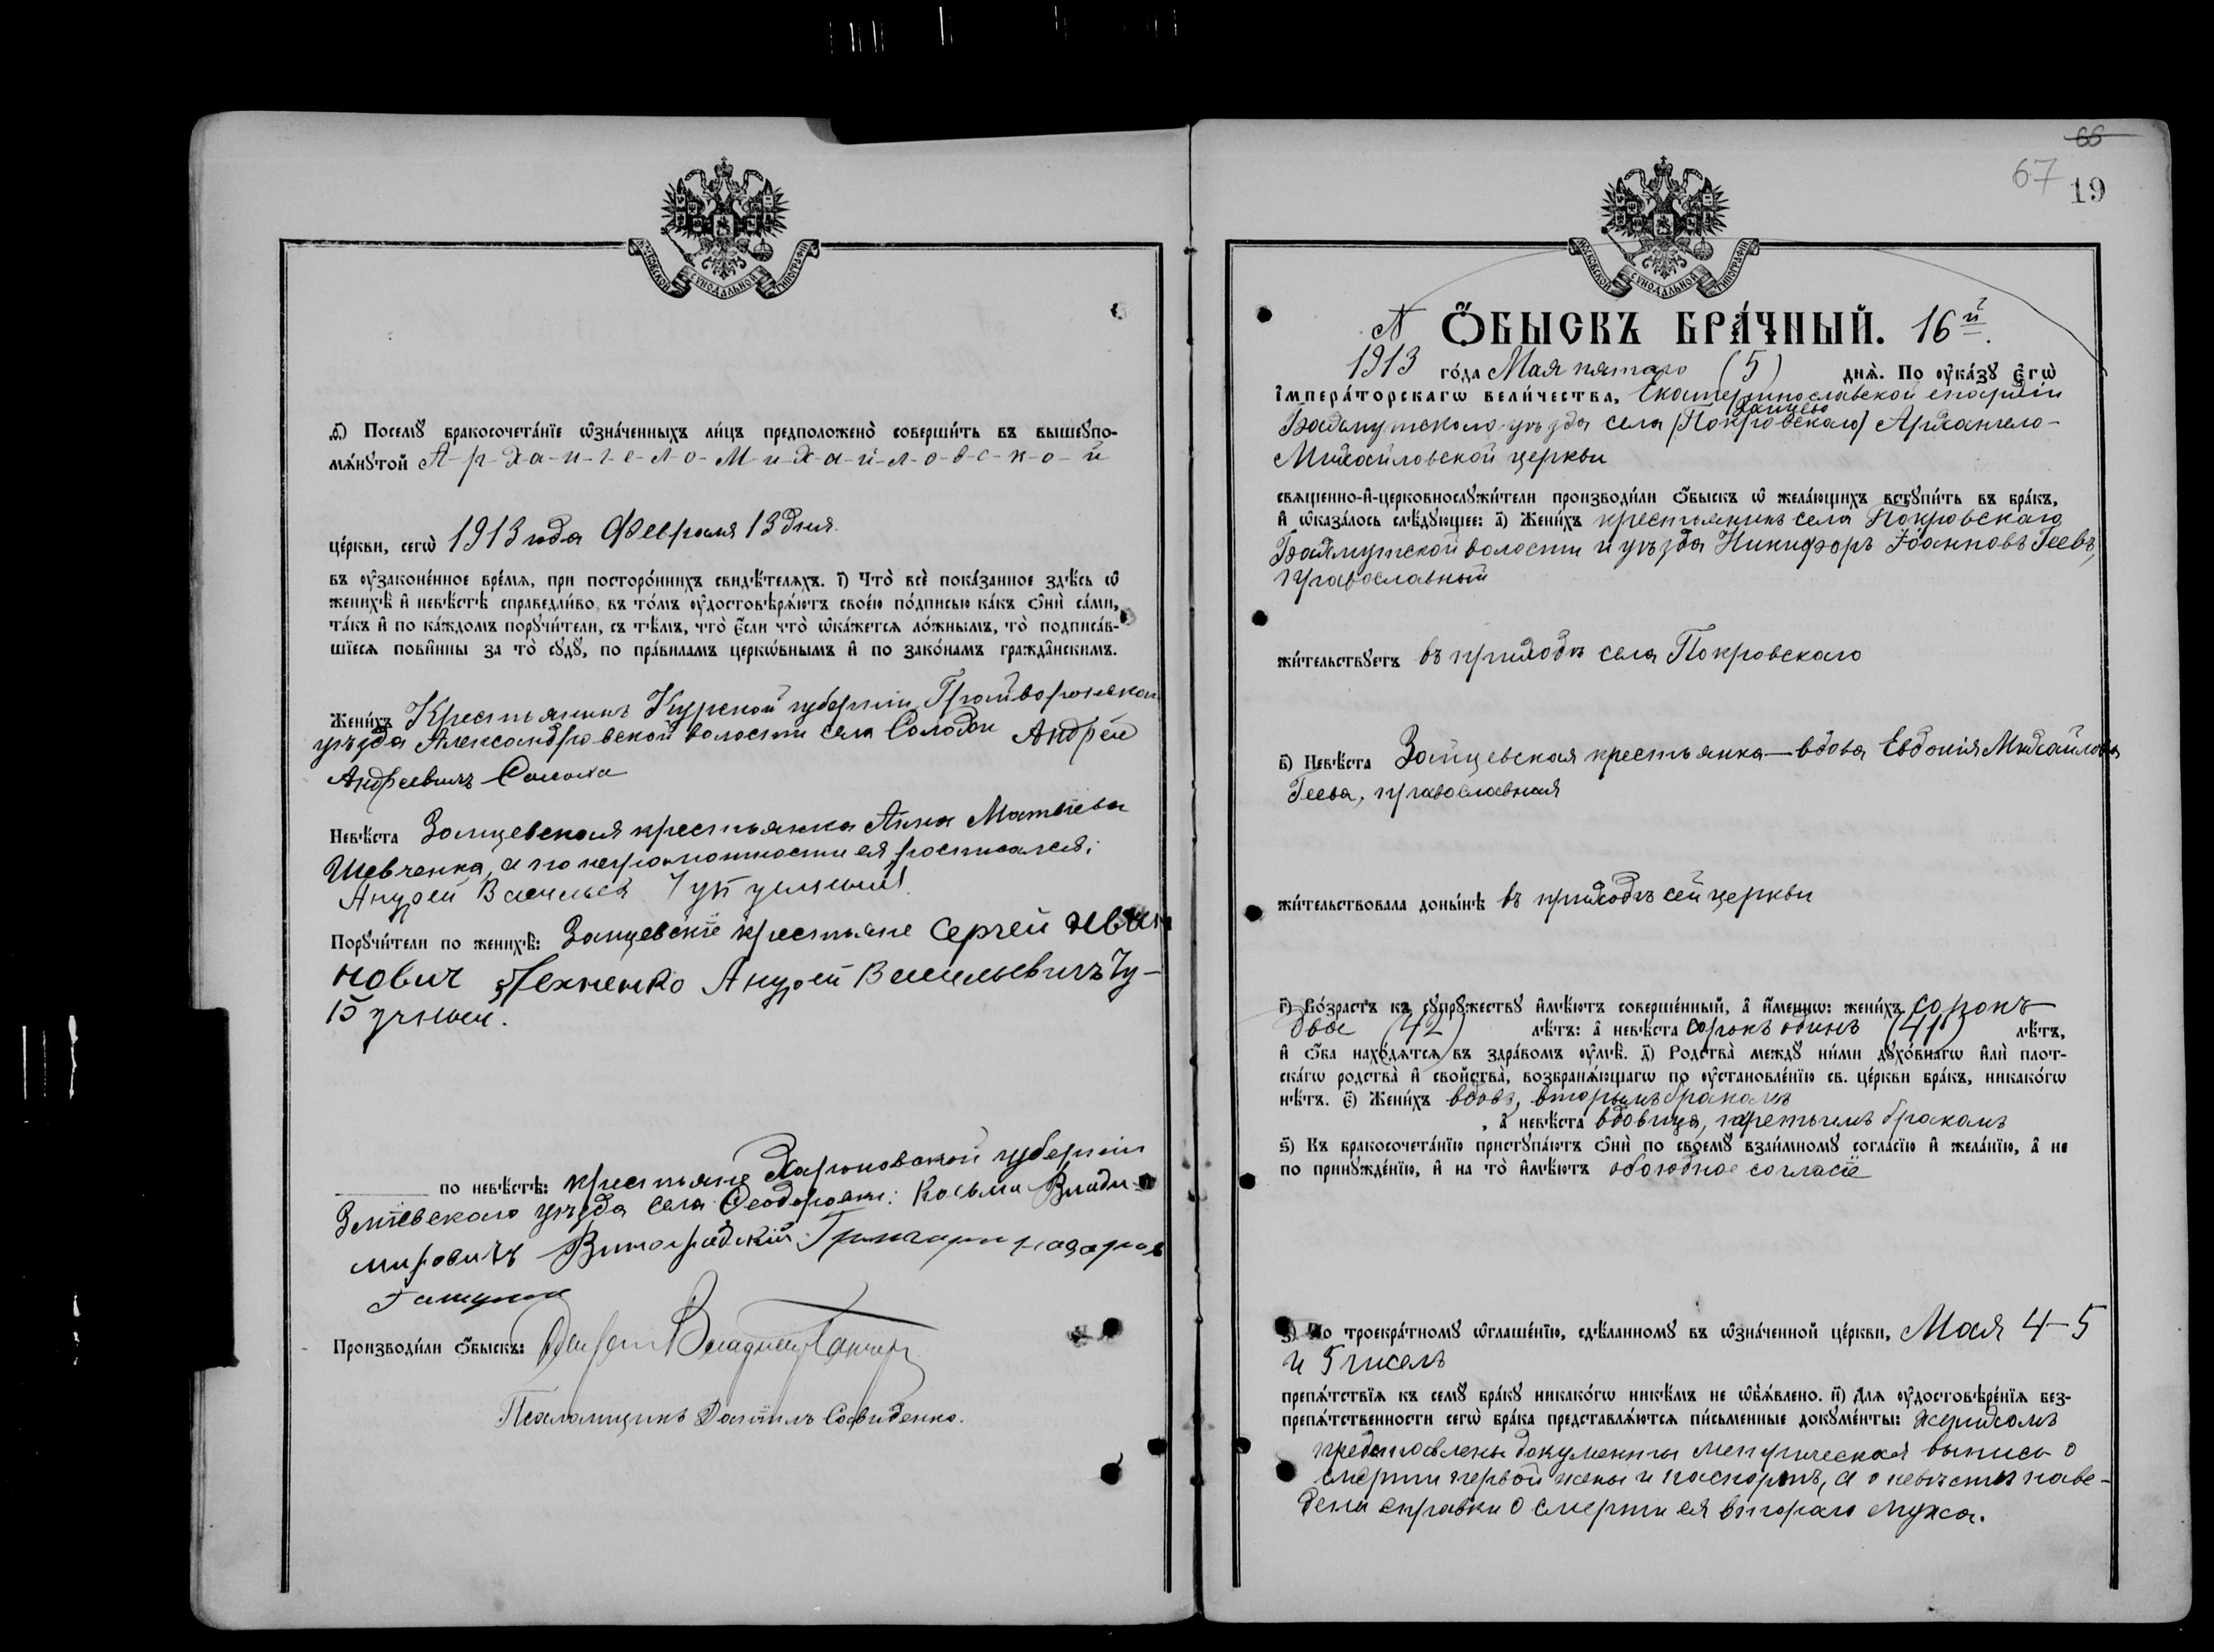 МОСКОВСКОЙ СУНОДАЛЬНОЙ ТИПОГРАФІИ
д҃) Посемꙋ̀ бракосочета́нїе ѡ҆зна́ченныхъ ли́цъ предположено̀ соверши́ть въ вышеꙋпо-
мѧ́нꙋтой А-р-ха-н-г-е-л-о-М-и-ха-й-л-о-в-с-к-о-й
це́ркви, сегѡ̀ 1913 года Февраля 13 дня.
въ ᲂу҆законе́нное вре́мѧ, при посторо́ннихъ свидѣ́телѧхъ. і҃) Что̀ всѐ пока́занное здѣ́сь ѡ҆
женихѣ̀ и҆ невѣ́стѣ справедли́во, въ то́мъ ᲂу҆достовѣрѧ́ютъ свое́ю по́дписью ка́къ ѻ҆нѝ са́ми,
та́къ и҆ по ка́ждомъ порꙋчи́тели, съ тѣ́мъ, что̀ є҆́сли что̀ ѡ҆ка́жетсѧ ло́жнымъ, то̀ подписа́в-
шїесѧ пови́нны за то̀ сꙋдꙋ̀, по пра́виламъ церкѡ́внымъ и҆ по зако́намъ гражда̑нскимъ.
Жени́хъ Крестьянинъ Курской губерніи Грайворонскаго
уѣзда Александровской волости села Солодки Андрей
Андреевичъ Солоха
Невѣ́ста Зайцевская крестьянка Анна Матвіева
Шевченка, а по неграмотности ея росписался:
Андрей Васильев
Порꙋчи́тели по женихѣ̀: Зайцевскіе крестьяне Сергей Ива
нович Андрей Васильевичъ Чу-
по невѣ́стѣ: крестьяне Харьковской губерніи
Зміевскаго уѣзда села Ѳеодоровки: Косьма Влади
мировичъ Виноградскій Григорий Назаров
Производи́ли ѻ҆́быскъ:
Псаломщикъ Даніилъ Савиденко.
66
67 19
МОСКОВСКОЙ СУНОДАЛЬНОЙ ТИПОГРАФІИ
N ѺБЫСКЪ БРА́ЧНЫЙ. 16й.
1913 го́да Мая пятаго (5) днѧ̀. По ᲂу҆ка́зꙋ Є҆гѡ̀
І҆мпера́торскагѡ вели́чества, Екатеринославской епархіи
Зайцево
Бахмутскаго уѣзда села (Покровскаго) Архангело-
Михайловской церкви
свѧще́нно-и҆-церковнослꙋжи́тели производи́ли ѻ҆́быскъ ѡ҆ жела́ющихъ встꙋпи́ть въ бра́къ,
и҆ ѡ҆каза́лось слѣ́дꙋющее: а҃) Жени́хъ крестьянинъ села Покровскаго
Бахмутской волости и уѣзда Никифоръ Іоанновъ Геевъ,
православный
жи́тельствꙋетъ въ приходѣ села Покровскаго
в҃) Невѣ́ста Зайцевская крестьянка-вдова Евдокія Михайлова
Геева, православная
жи́тельствовала доны́нѣ въ приходѣ сей церкви
г҃) Во́зрастъ къ сꙋпрꙋ́жествꙋ и҆мѣ́ютъ соверше́нный, а҆ и҆́меннѡ: жени́хъ сорокъ
два (42) лѣ́тъ: а҆ невѣ́ста сорокъ одинъ (41) лѣ́тъ,
и҆ ѻ҆́ба нахо́дѧтсѧ въ здра́вомъ ᲂу҆мѣ̀. д҃) Родства̀ междꙋ̀ ни́ми дꙋхо́внагѡ и҆лѝ плот-
ска́гѡ родства̀ и҆ свойства̀, возбранѧ́ющагѡ по ᲂу҆становле́нїю св. це́ркви бра́къ, никако́гѡ
нѣ́тъ. є҃) Жени́хъ вдовъ, вторымъ бракомъ
, а҆ невѣ́ста вдовица, третьимъ бракомъ
ѕ҃) Къ бракосочета́нїю пристꙋпа́ютъ ѻ҆нѝ по своемꙋ̀ взаи́мномꙋ согла́сїю и҆ жела́нїю, а҆ не
по принꙋжде́нїю, и҆ на то̀ и҆мѣ́ютъ обоюдное согласіе
з҃) По троекра́тномꙋ ѡ҆глаше́нїю, сдѣ́ланномꙋ въ ѡ҆зна́ченной це́ркви, Мая 4-5
и 5 числъ
препѧ́тствїѧ къ семꙋ̀ бра́кꙋ никако́гѡ никѣ́мъ не ѡ҆б̾ѧ́влено. и҃) Длѧ ᲂу҆достовѣре́нїѧ без-
препѧ́тственности сегѡ̀ бра́ка представлѧ́ютсѧ пи́сьменные докꙋме́нты: женихомъ
представлены документы метрическая выпись о
смерти первой жены и паспортъ, а о невѣстѣ наве-
дены справки о смерти ея втораго мужа.